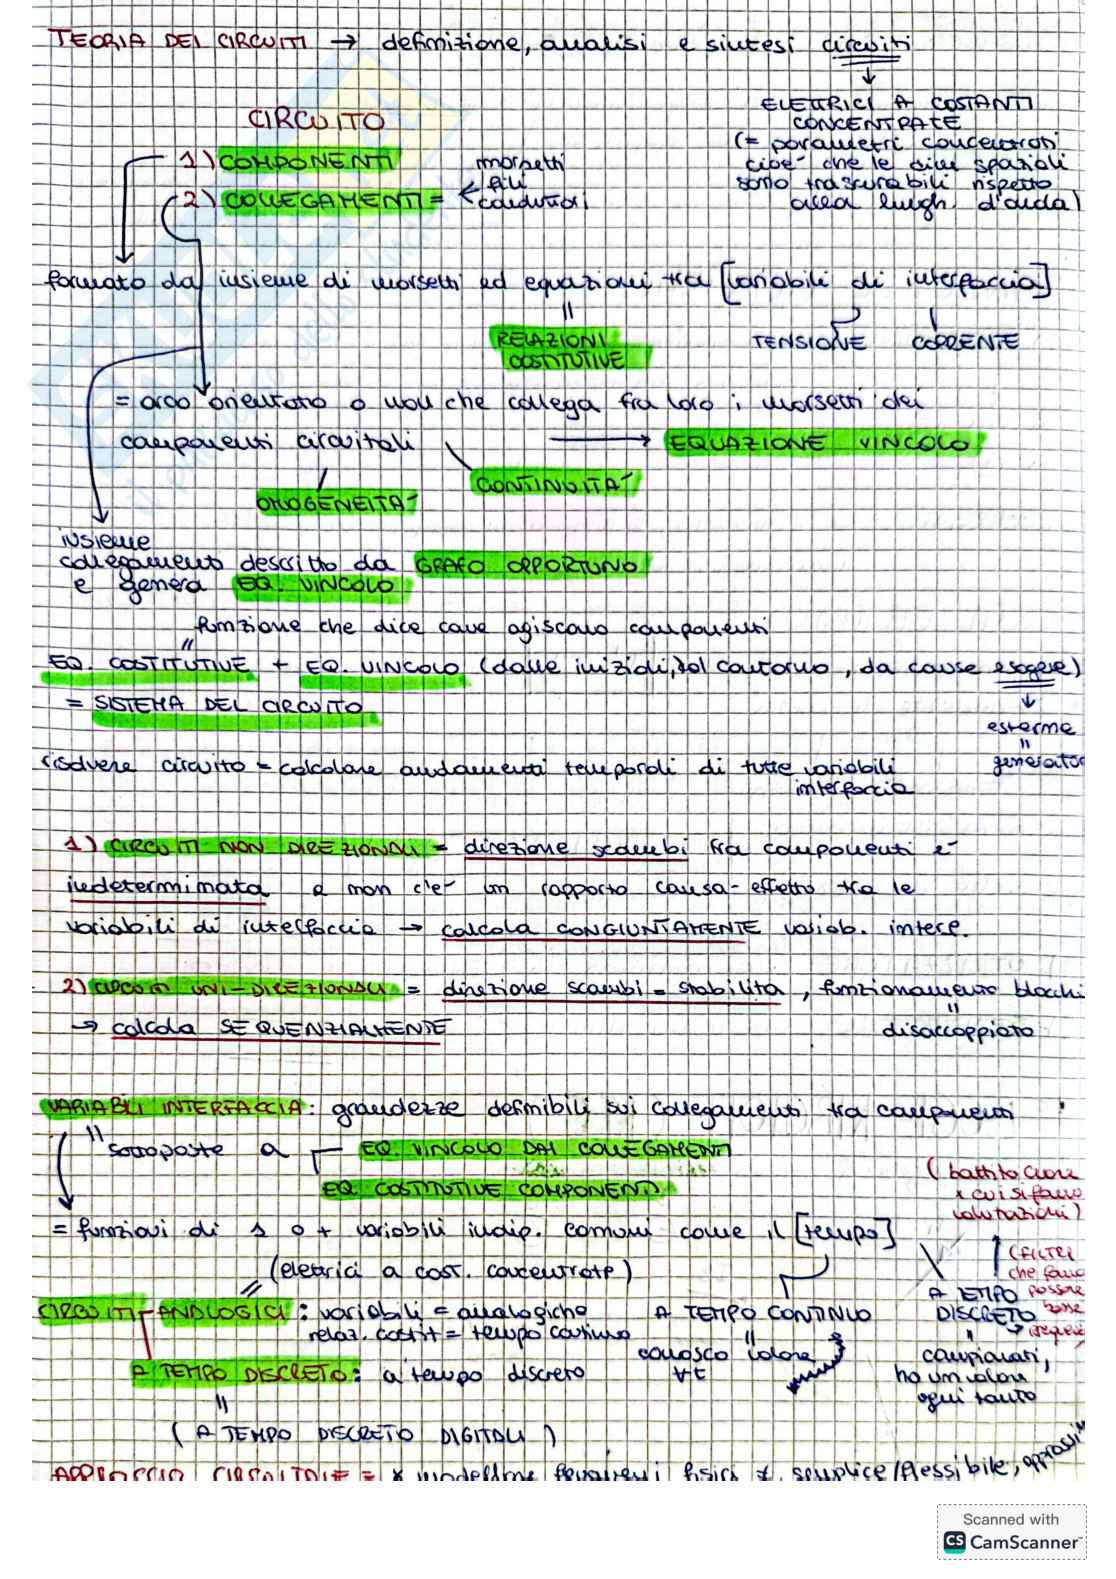 TEORIA DEI CIRCUITI → definizione, analisi e sintesi circuiti
ELETTRICI A COSTANTI
CONCENTRATE
(= parametri concentrati
cioè che le dim spaziali
sono trascurabili rispetto
alla lungh. d'onda)
CIRCUITO
1) COMPONENTI
2) COLLEGAMENTI =
morsetti
fili
conduttori
formato da insieme di morsetti ed equazioni tra [variabili di interfaccia]
RELAZIONI
COSTITUTIVE
TENSIONE CORRENTE
= arco orientato o non che collega fra loro i morsetti dei
componenti circuitali → EQUAZIONE VINCOLO
CONTINUITÀ
OMOGENEITÀ
insieme
collegamento descritto da GRAFO OPPORTUNO
e genera EQ. VINCOLO
funzione che dice come agiscono componenti
EQ. COSTITUTIVE + EQ. VINCOLO (dalle iniziali, al contorno, da cause esogene)
= SISTEMA DEL CIRCUITO
esterne
=
generatori
risolvere circuito = calcolare andamenti temporali di tutte variabili
interfaccia
1) CIRCUITI NON DIREZIONALI = direzione scambi fra componenti è
indeterminata e non c'è un rapporto causa-effetto tra le
variabili di interfaccia → calcola CONGIUNTAMENTE variab. interf.
2) CIRCUITI UNI-DIREZIONALI = direzione scambi = stabilita, funzionamento blocchi
→ calcola SEQUENZIALMENTE
=
disaccoppiato
VARIABILI INTERFACCIA: grandezze definibili sui collegamenti tra componenti
sottoposte a EQ. VINCOLO DAI COLLEGAMENTI
EQ COSTITUTIVE COMPONENTI
(battito cuore
x cui si fanno
valutazioni)
= funzioni di 1 o + variabili indip. comuni come il [tempo]
(elettrici a cost. concentrate)
(FILTRI
che fanno
passare
basse
frequenze
CIRCUITI ANALOGICI: variabili = analogiche
relaz. costit = tempo continuo
A TEMPO CONTINUO
=
conosco valore
∀t
A TEMPO
DISCRETO
campionari,
ho un valore
ogni tanto
A TEMPO DISCRETO: a tempo discreto
=
(A TEMPO DISCRETO DIGITALI)
APPROCCIO CIRCUITALE = x modellare fenomeni fisici semplice/flessibile, approssi
Scanned with
CS CamScanner